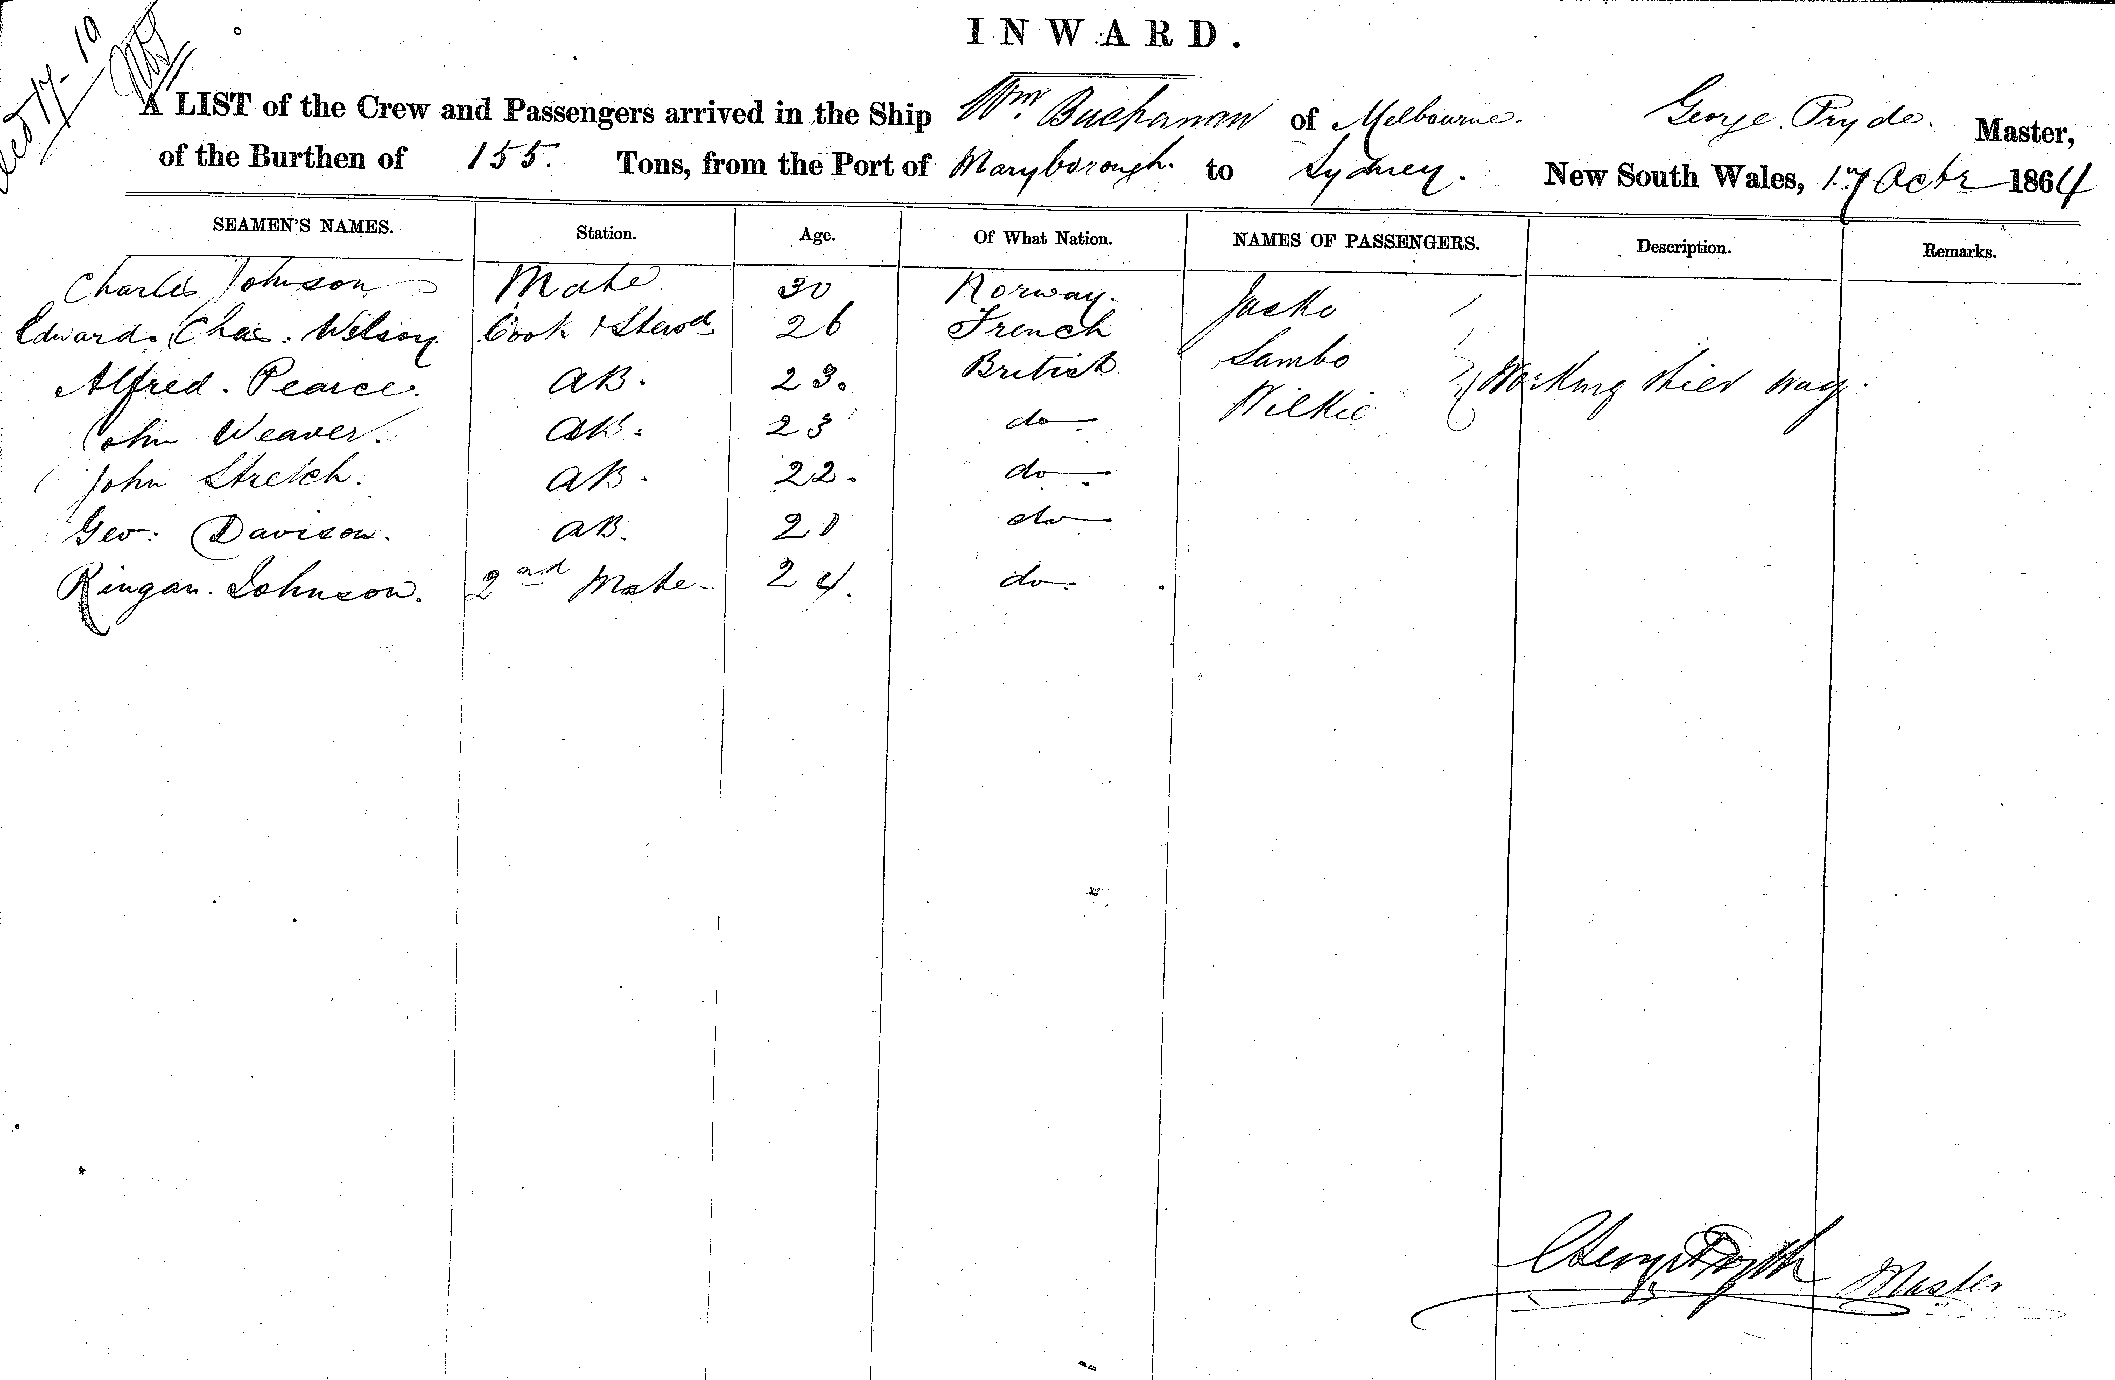 INWARD.
A LIST of the Crew and Passengers arrived in the Ship Wm. Buchanan of Melbourne. George Pryde. Master,
of the Burthen of 155. Tons, from the Port of Maryborough. to Sydney. New South Wales, 17 Octr 1864
SEAMEN'S NAMES. Station. Age. Of What Nation. NAMES OF PASSENGERS. Description. Remarks.
Charles Johnson Mate 30 Norway. Jacko
Edward. Chas. Wilson Cook & Stewd 26 French Sambo
Alfred. Pearce. AB. 23. British Wilkie Working their way.
John Weaver. AB. 23 do
John Stretch. AB. 22. do
Geo. Davison. AB. 20 do
Ringan. Johnson. 2nd Mate 24. do
Master